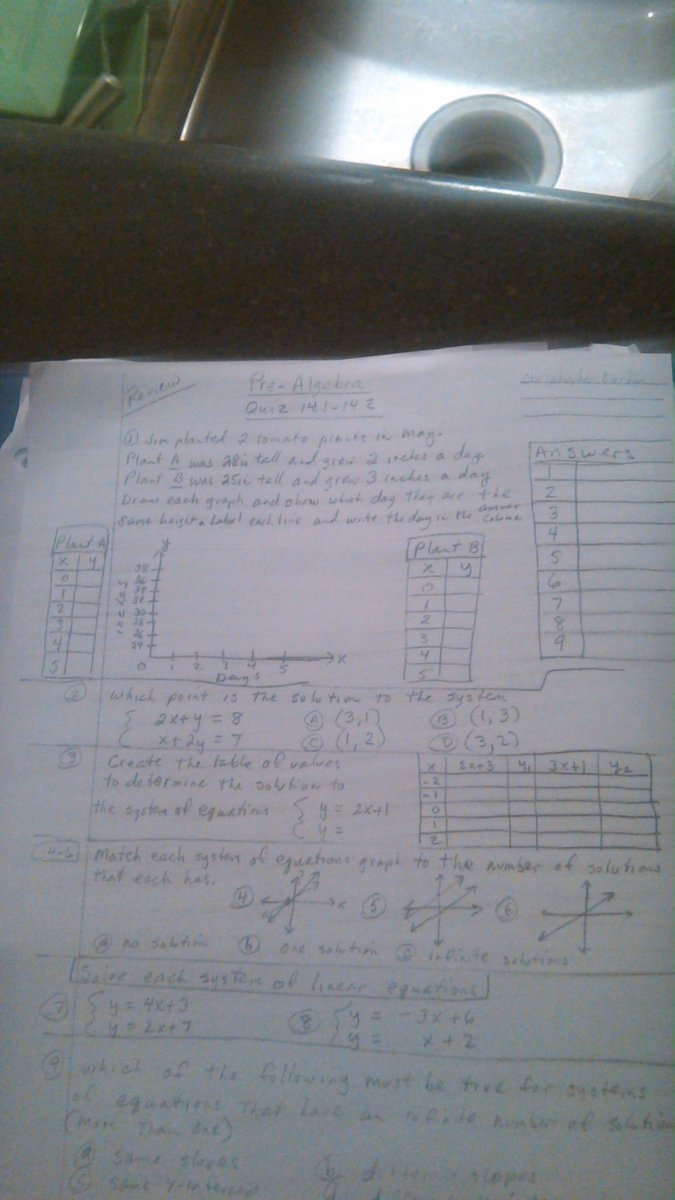 Review
Pre-Algebra
Quiz 14.1-14.2
① Jim planted 2 tomato plants in May.
Plant A was 28in tall and grew 2 inches a day
Plant B was 25in tall and grew 3 inches a day
Draw each graph and show which day they are the
same height. Label each line and write the day in the answer column
Answers
1
2
3
4
5
6
7
8
9
Plant A
x y
0
1
2
3
4
5
y
inches
38
36
34
32
30
28
26
24
0 1 2 3 4 5 x
Days
Plant B
x y
0
1
2
3
4
5
② which point is the solution to the system
2x+y = 8 Ⓐ (3,1) Ⓑ (1,3)
x+2y = 7 Ⓒ (1,2) Ⓓ (3,2)
③ Create the table of values
to determine the solution to
the system of equations y = 2x+1
y =
x 2x+3 y₁ 3x+1 y₂
-2
-1
0
1
2
4-6 Match each system of equations graph to the number of solutions
that each has.
④ x ⑤ ⑥
ⓐ no solution ⓑ one solution ⓒ infinite solutions
Solve each system of linear equations
⑦ y = 4x+3 ⑧ y = -3x+6
y = 2x+7 y = x+2
⑨ which of the following must be true for systems
of equations that have an infinite number of solution
(more than one)
ⓐ same slopes ⓑ different slopes
ⓒ same y-intercept